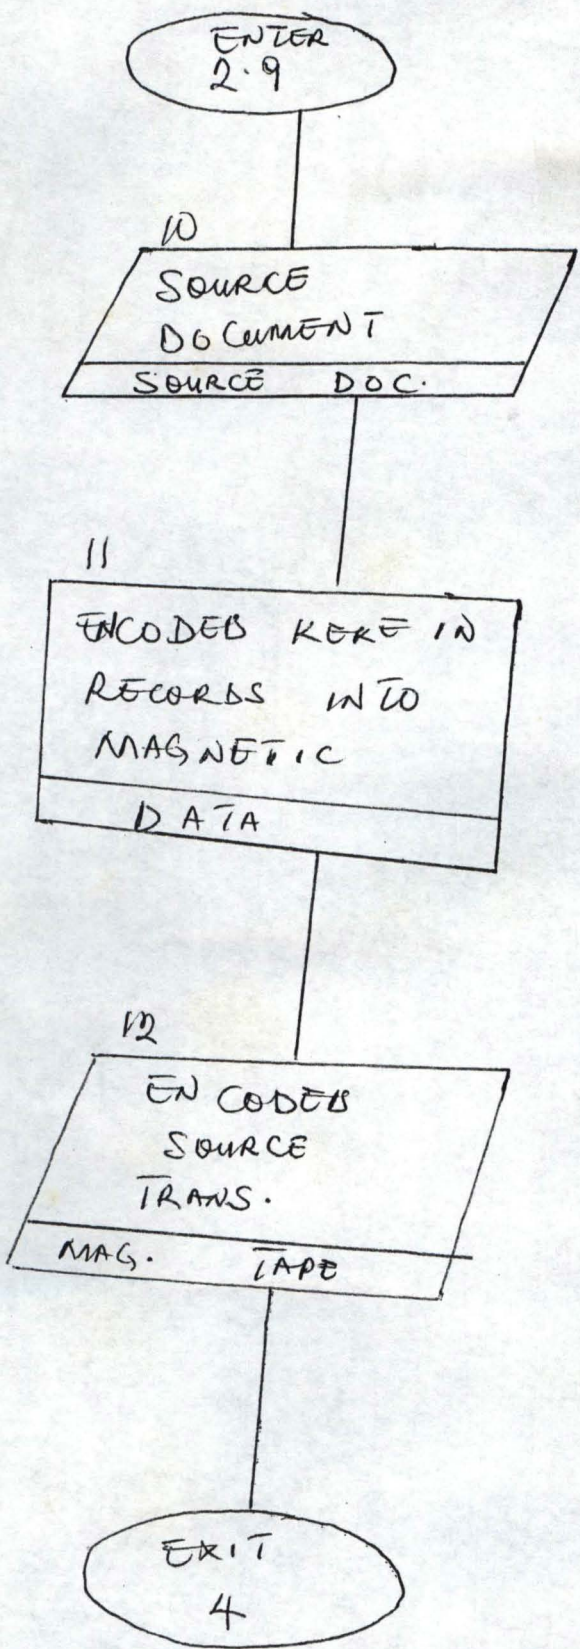 ENTER
2.9
10
SOURCE
DOCUMENT
SOURCE DOC.
11
ENCODED KERE IN
RECORDS INTO
MAGNETIC
DATA
12
ENCODED
SOURCE
TRANS.
MAG. TAPE
EXIT
4